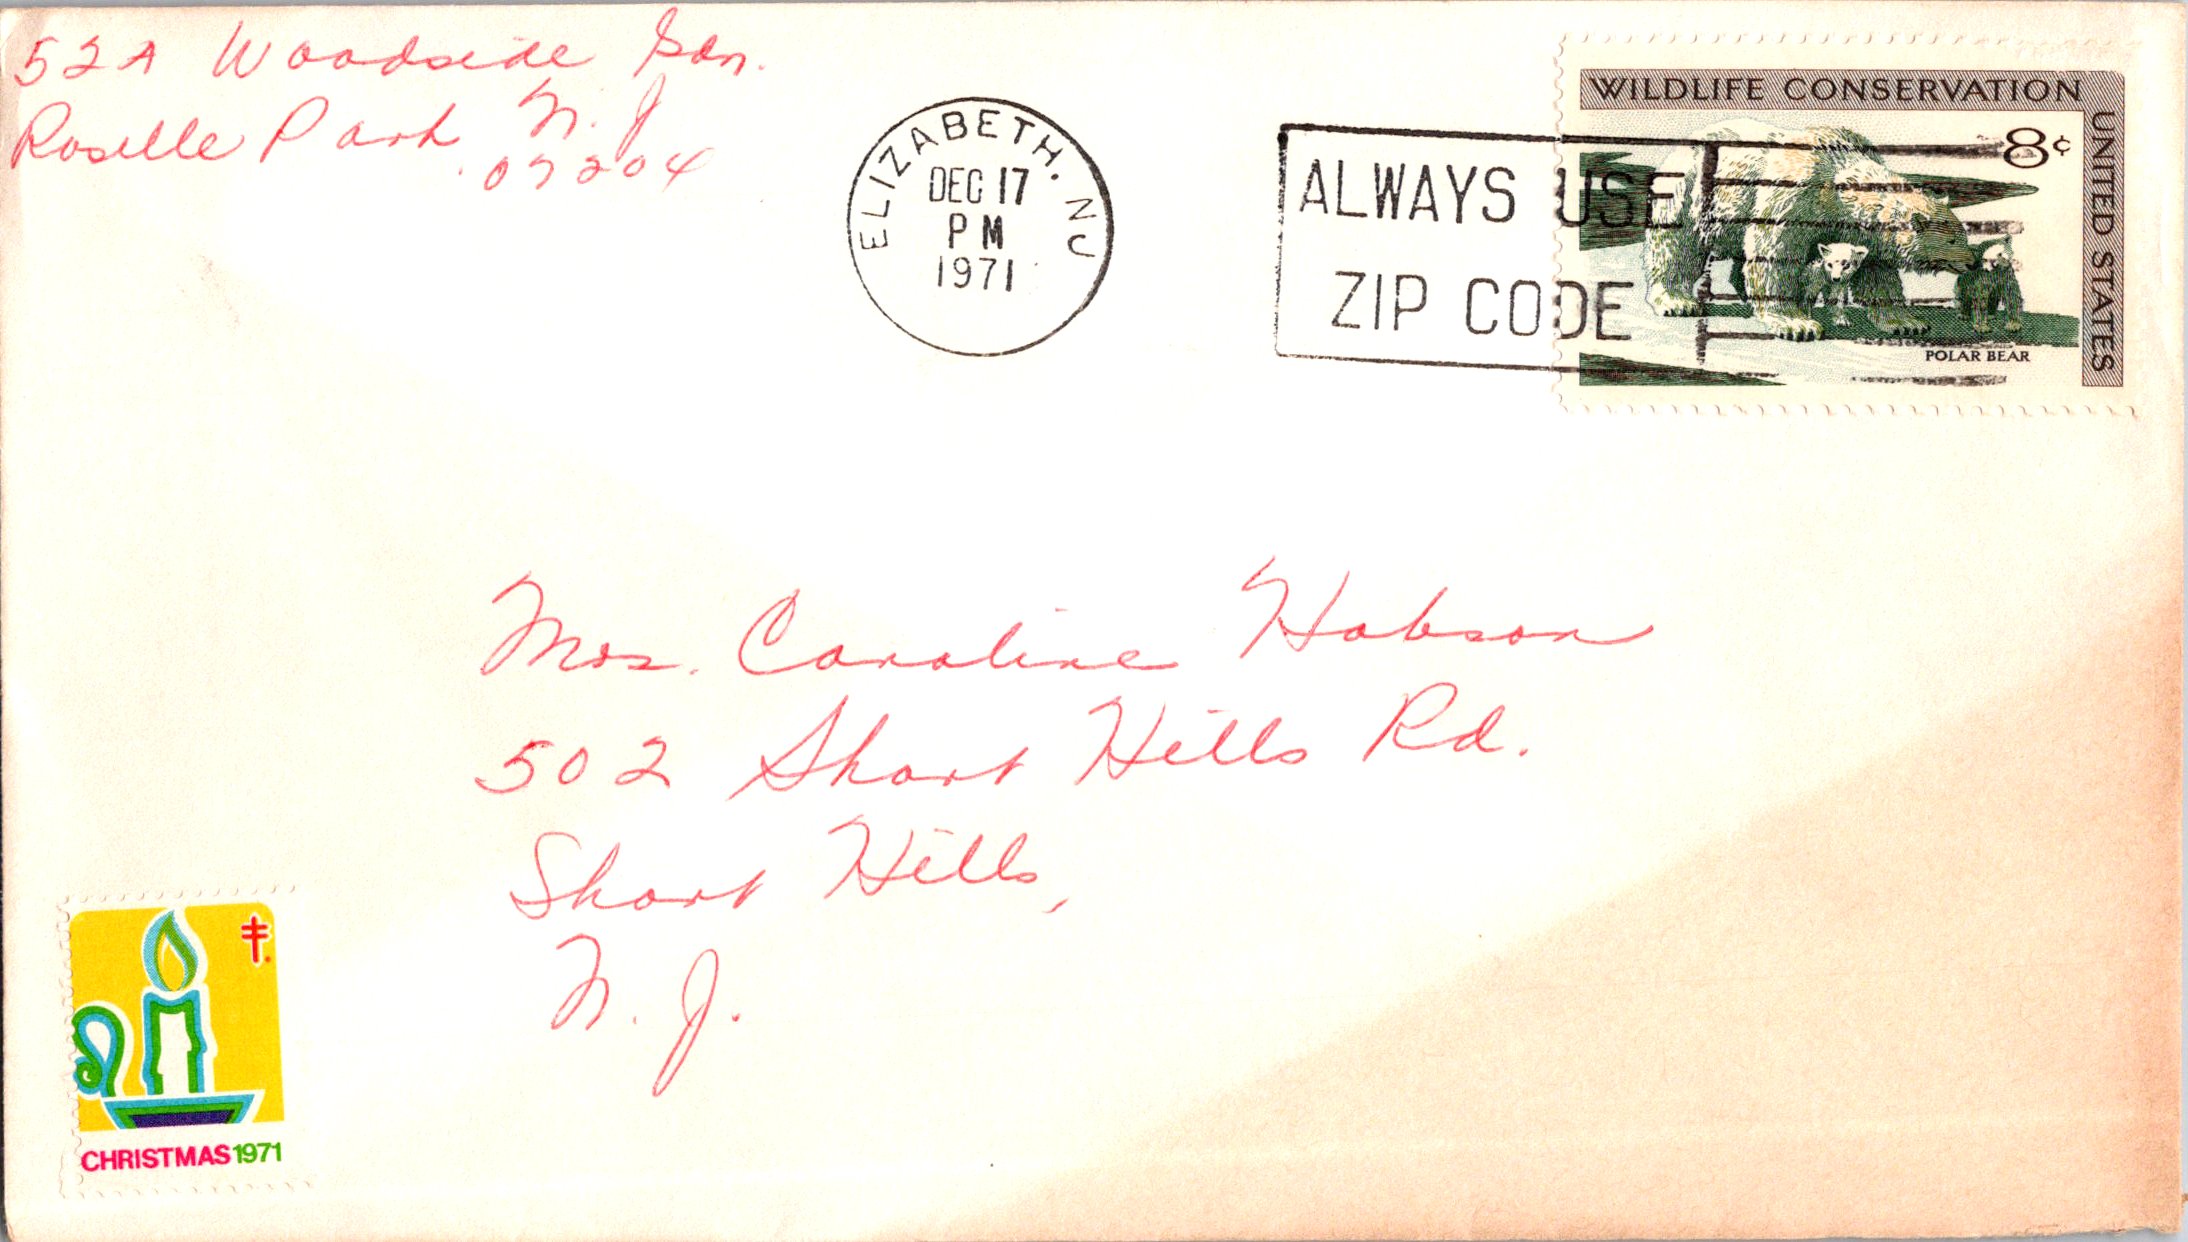 52A Woodside Gdn.
Roselle Park N.J
07204
ELIZABETH, NJ
DEC 17
PM
1971
ALWAYS USE
ZIP CODE
WILDLIFE CONSERVATION
UNITED STATES
8¢
POLAR BEAR
Mrs. Caroline Hobson
502 Short Hills Rd.
Short Hills,
N. J.
CHRISTMAS 1971